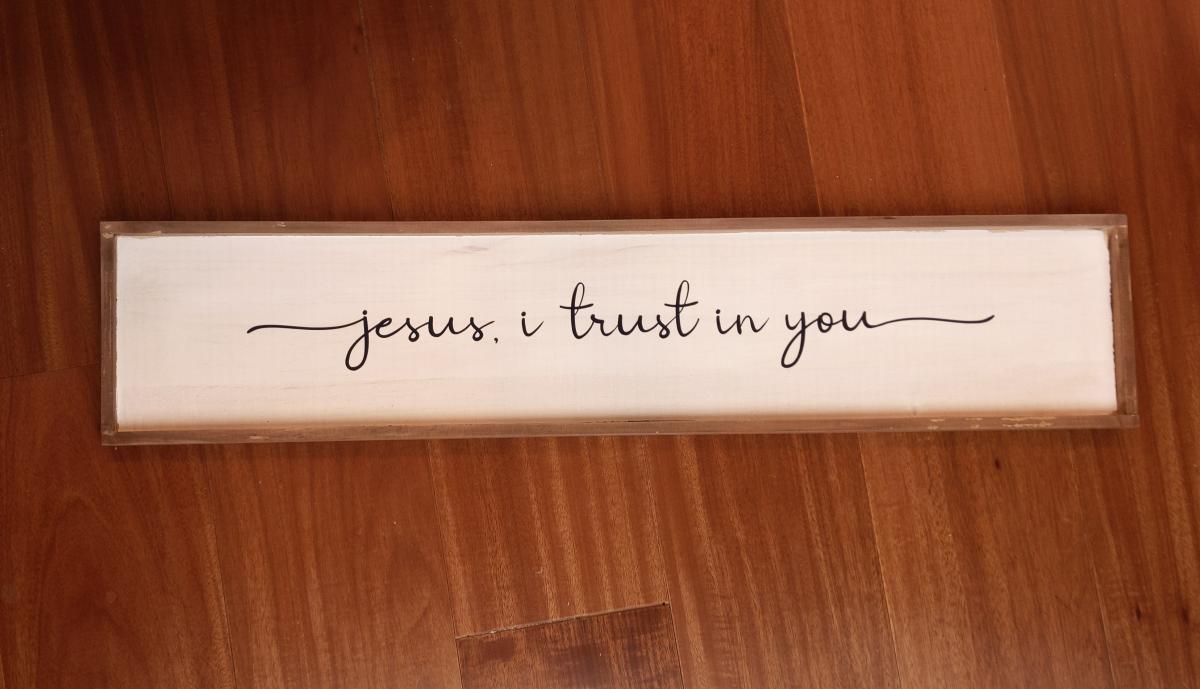 jesus, i trust in you